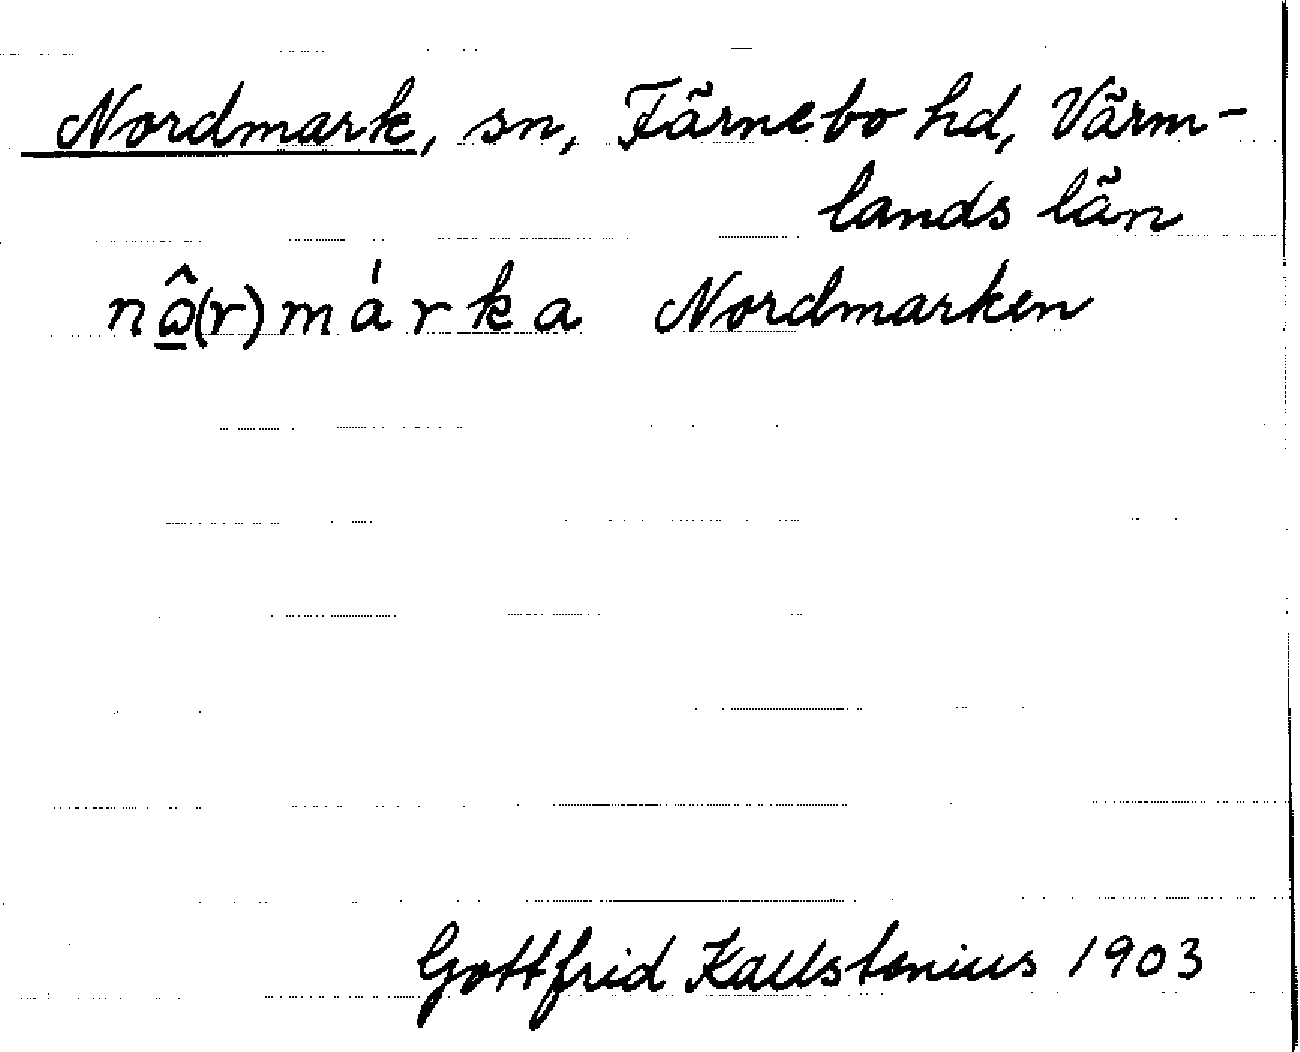 Nordmark, sn, Färnebo hd, Värm-
lands län
nω̱̂(r)márka Nordmarken
Gottfrid Kallstenius 1903